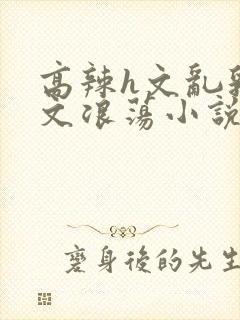 高辣h文亂
文浪蕩小說
變身後的先生